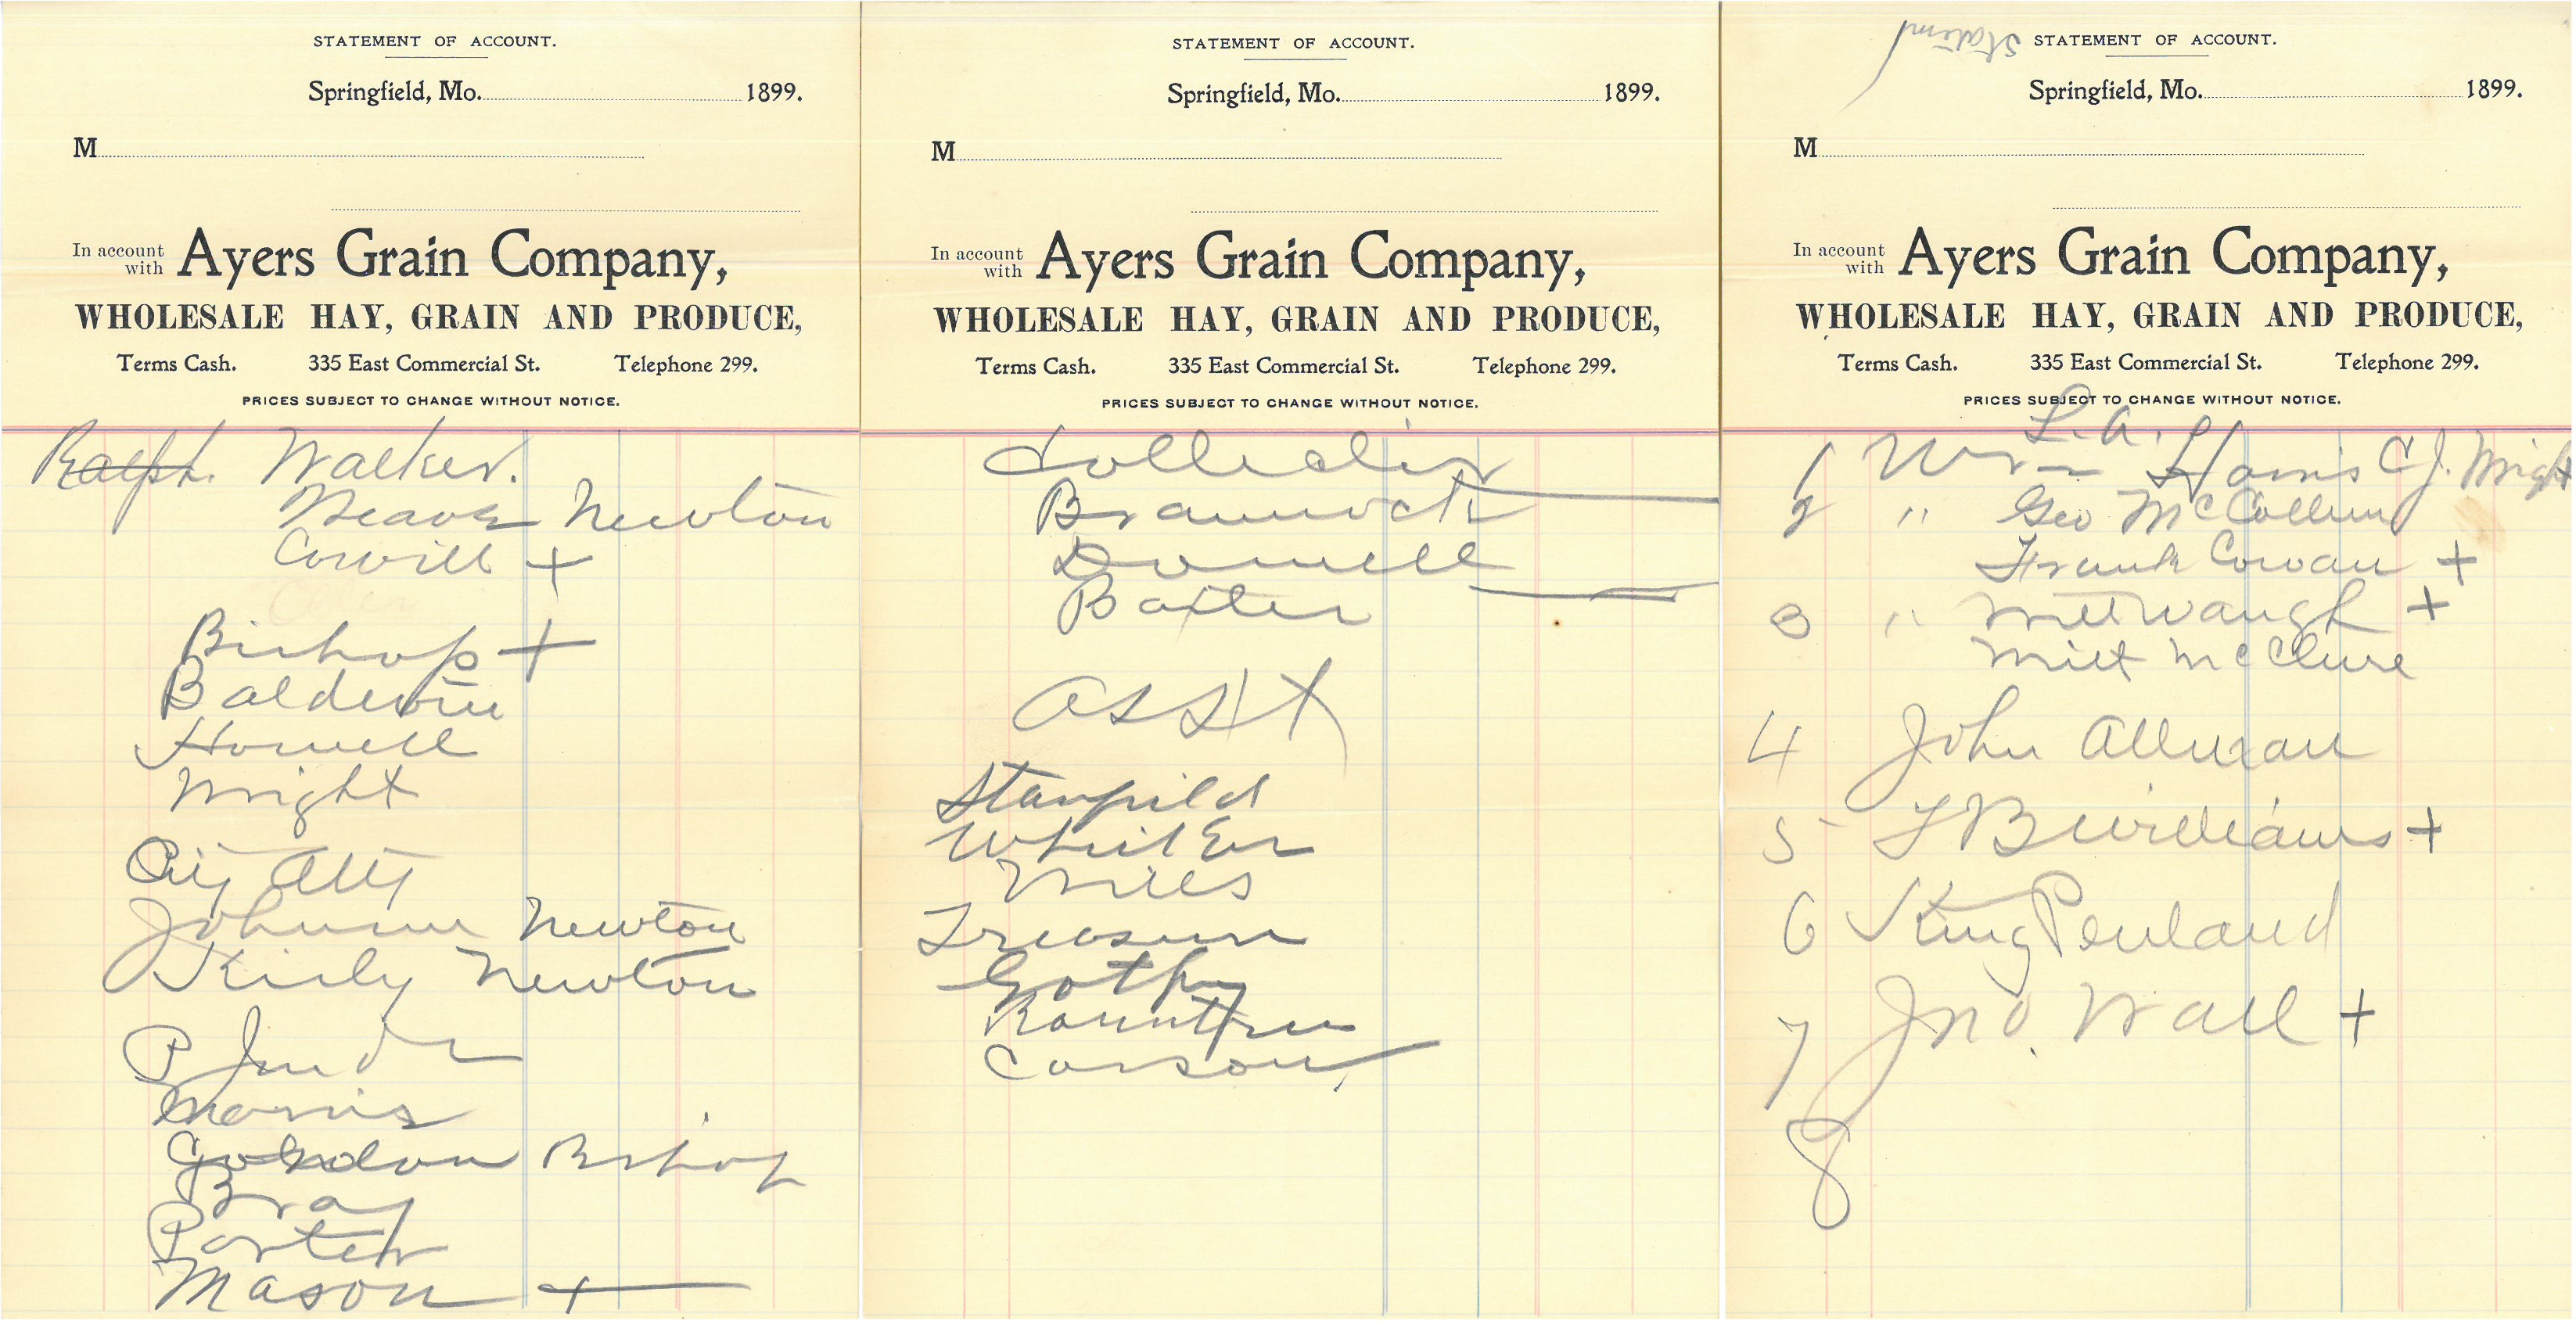 STATEMENT OF ACCOUNT.
Springfield, Mo. 1899.
M
In account with Ayers Grain Company,
WHOLESALE HAY, GRAIN AND PRODUCE,
Terms Cash. 335 East Commercial St. Telephone 299.
PRICES SUBJECT TO CHANGE WITHOUT NOTICE.
Ralph. Walker.
Newton
+
Bishop +
Baldwin
Howell
Wright
City Atty
Johnson Newton
Kirly Newton
P Jud
Morris
Gordon Bishop
Bray
Porter
Mason +
STATEMENT OF ACCOUNT.
Springfield, Mo. 1899.
M
In account with Ayers Grain Company,
WHOLESALE HAY, GRAIN AND PRODUCE,
Terms Cash. 335 East Commercial St. Telephone 299.
PRICES SUBJECT TO CHANGE WITHOUT NOTICE.
Collector
Brannock
Donnell
Baxter
Asst
Stanfield
Whitler
Mills
Treasurer
Rountree
Carson
STATEMENT OF ACCOUNT.
Springfield, Mo. 1899.
M
In account with Ayers Grain Company,
WHOLESALE HAY, GRAIN AND PRODUCE,
Terms Cash. 335 East Commercial St. Telephone 299.
PRICES SUBJECT TO CHANGE WITHOUT NOTICE.
L. A.
1 Wm Harris C J. Wright
2 " Geo McCollum
Frank Cowan +
3 " Waugh +
Milt McClure
4 John Allman
5 - F B Williams +
6 King Penland
7 Jno. Wall +
8